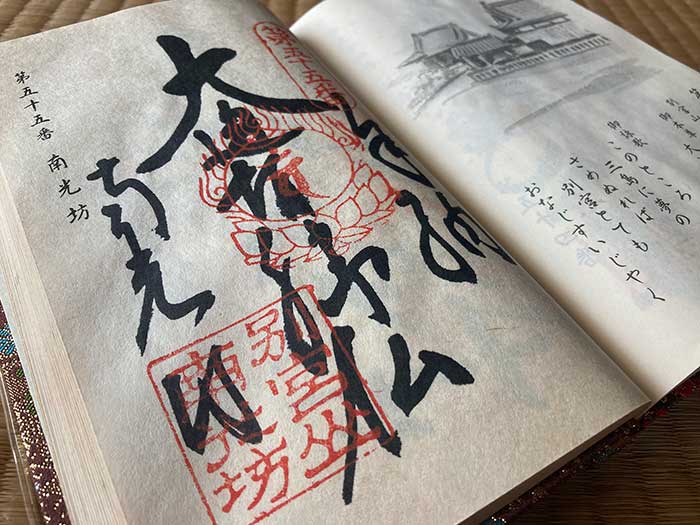 大
御詠歌
このところ
三島に夢の
さめぬれば
別宮とても
おなじすいじやく
奉納
第五十五番
大通智勝仏
南光坊
別宮山
南光坊
第五十五番 南光坊